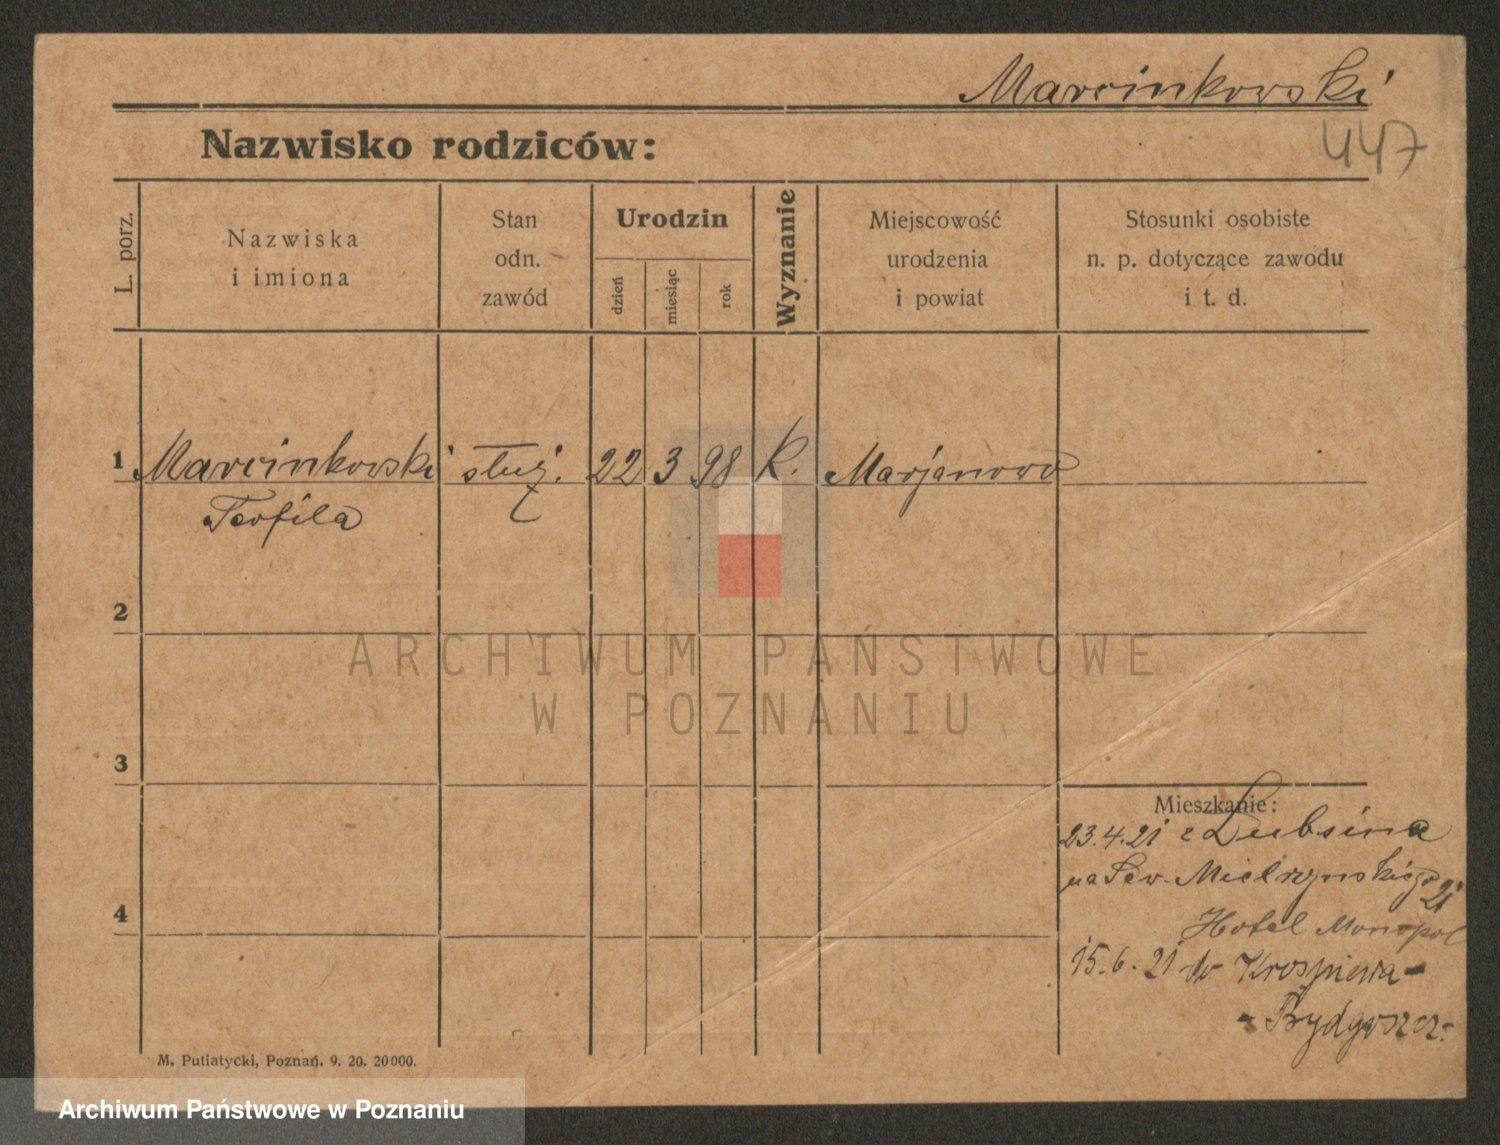 Marcinkowski
447
Nazwisko rodziców:
L. porz.
Nazwiska
i imiona
Stan
odn.
zawód
Urodzin
dzień
miesiąc
rok
Wyznanie
Miejscowość
urodzenia
i powiat
Stosunki osobiste
n. p. dotyczące zawodu
i t. d.
1 Marcinkowski służ. 22 3 98 K. Marjanowo
Teofila
2
ARCHIWUM PAŃSTWOWE
W POZNANIU
3
Mieszkanie:
23.4.21 z Lubsina
na Sew. Mielżynskiego 21
4
Hotel Monopol
15.6.21 do
Bydgoszcz
M. Putiatycki, Poznań. 9. 20. 20000.
Archiwum Państwowe w Poznaniu